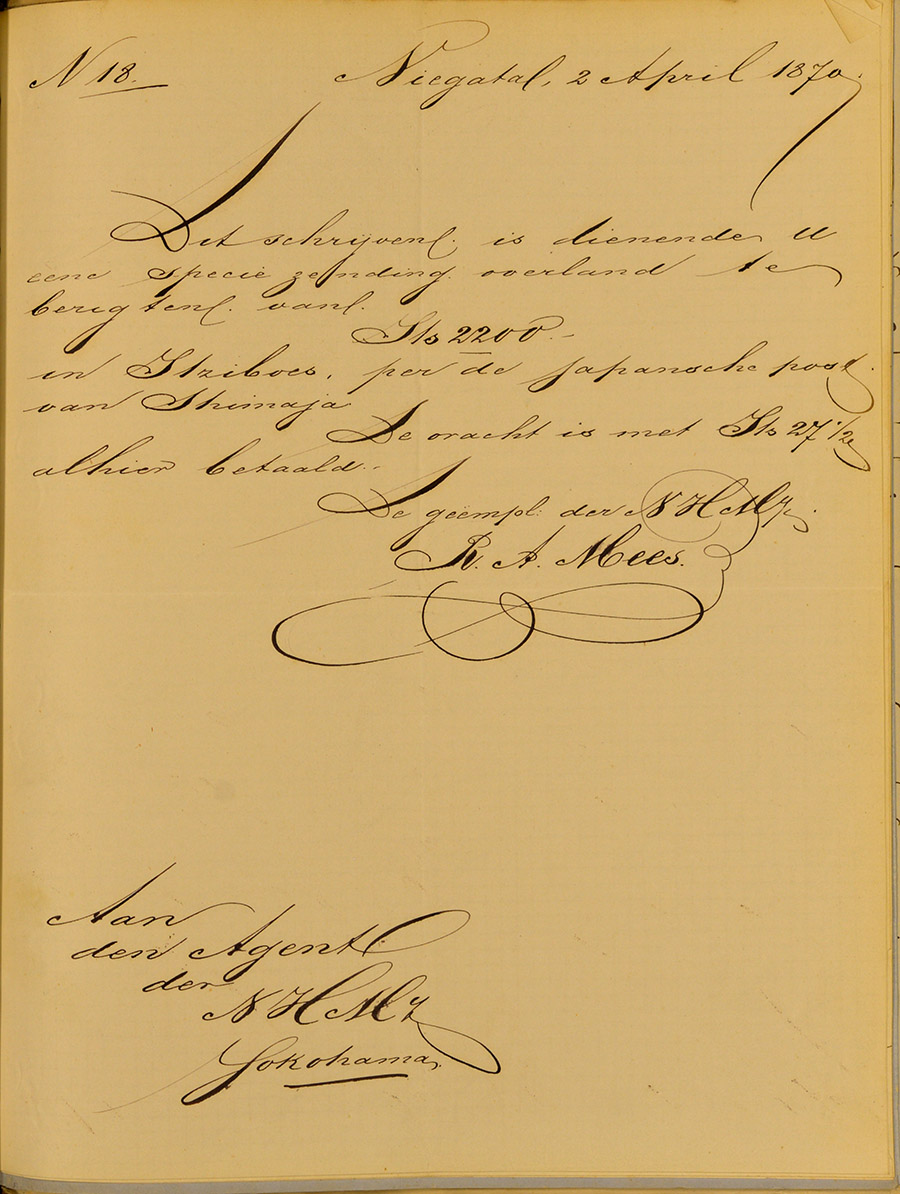 N 18.
Niegatal, 2 April 1870.
Dit schrijven is dienende U
eene specie zending overland te
berigten van
Its 2200.-
in Itziboes, per de japansche post
van Shimaja
De vracht is met Its 27 1/2
alhier betaald.
De geëmpl: der N H Mij.
R. A. Mees.
Aan
den Agent
der
N H Mij
Yokohama